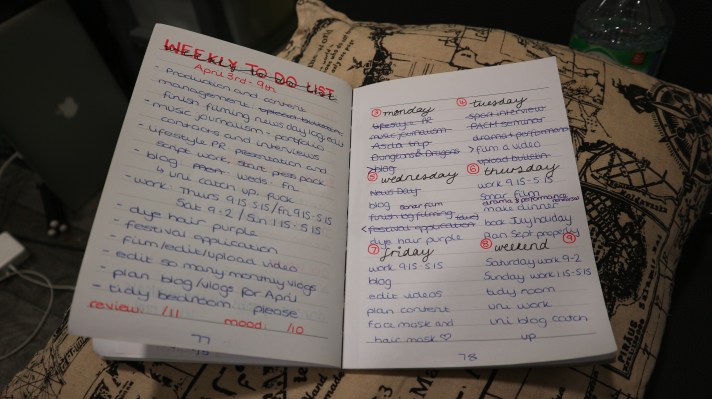 WEEKLY TO DO LIST
April 3rd - 9th
- production and content
management: upload bulletin,
finish filming newsday log cw
- music journalism - portfolio
contacts and interviews
- lifestyle PR: presentation and
script work, start press pack
- blog weds fri
- uni catch up
- work: Thurs 9.15 5.15 / fri 9.15-5.15
Sat 9-2 / Sun 1.15-5.15
- dye hair purple
- festival application
- film/edit/upload video
- edit so many monthly vlogs
- plan blog/vlogs for April
- tidy bedroom please
review: /11 mood: /10
77
3 monday
lifestyle PR
music journalism
Asda trip
Dungeons & Dragons
>blog
4 tuesday
sport interview
PACM seminar
drama + performance
>film a video
upload bulletin
5 wednesday
News Day
blog sonar film
finish log filming
<festival application
dye hair purple
6 thursday
work 9.15-5.15
sonar film
make dinner
book July holiday
plan Sept properly
7 friday
work 9.15 5.15
blog
edit videos
plan content
face mask and
hair mask ♡
8 weekend 9
Saturday work 9-2
Sunday work 1.15-5.15
tidy room
uni work
uni blog catch
up
78
PIRATE